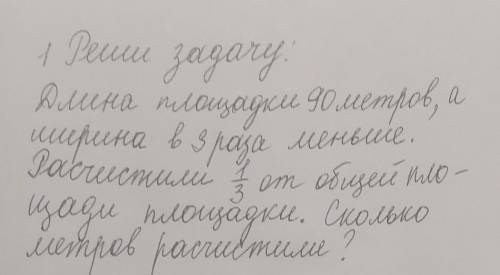 1 Реши задачу:
Длина площадки 90 метров, а
ширина в 3 раза меньше.
Расчистили 1/3 от общей пло-
щади площадки. Сколько
метров расчистили?